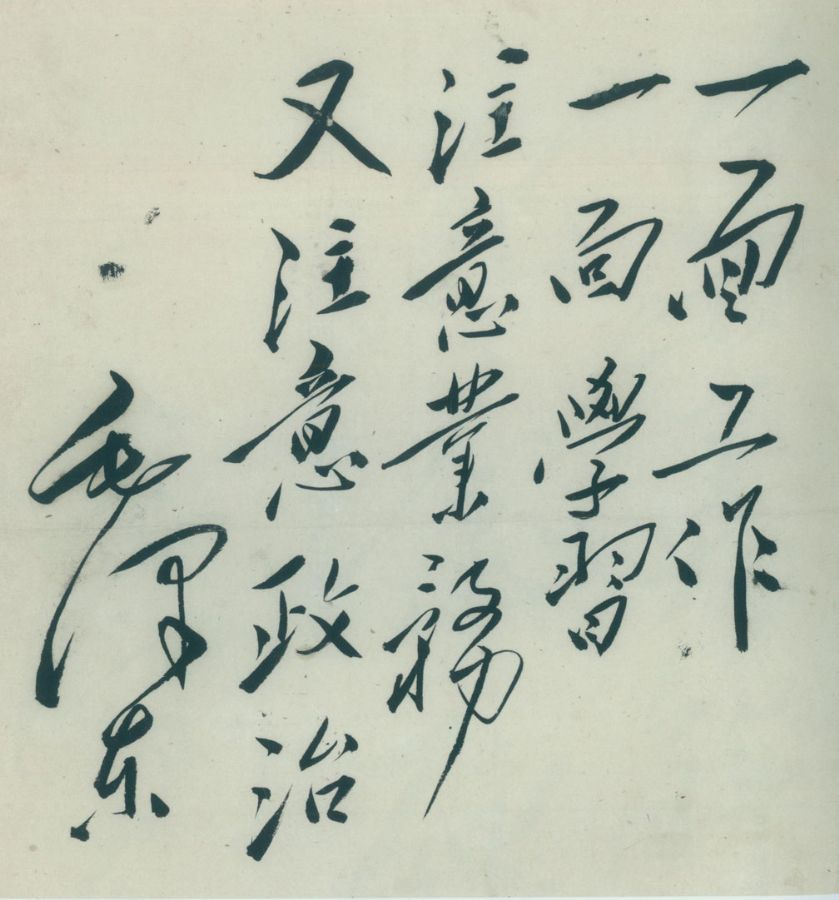 一面工作
一面學習
注意業務
又注意政治
毛澤东